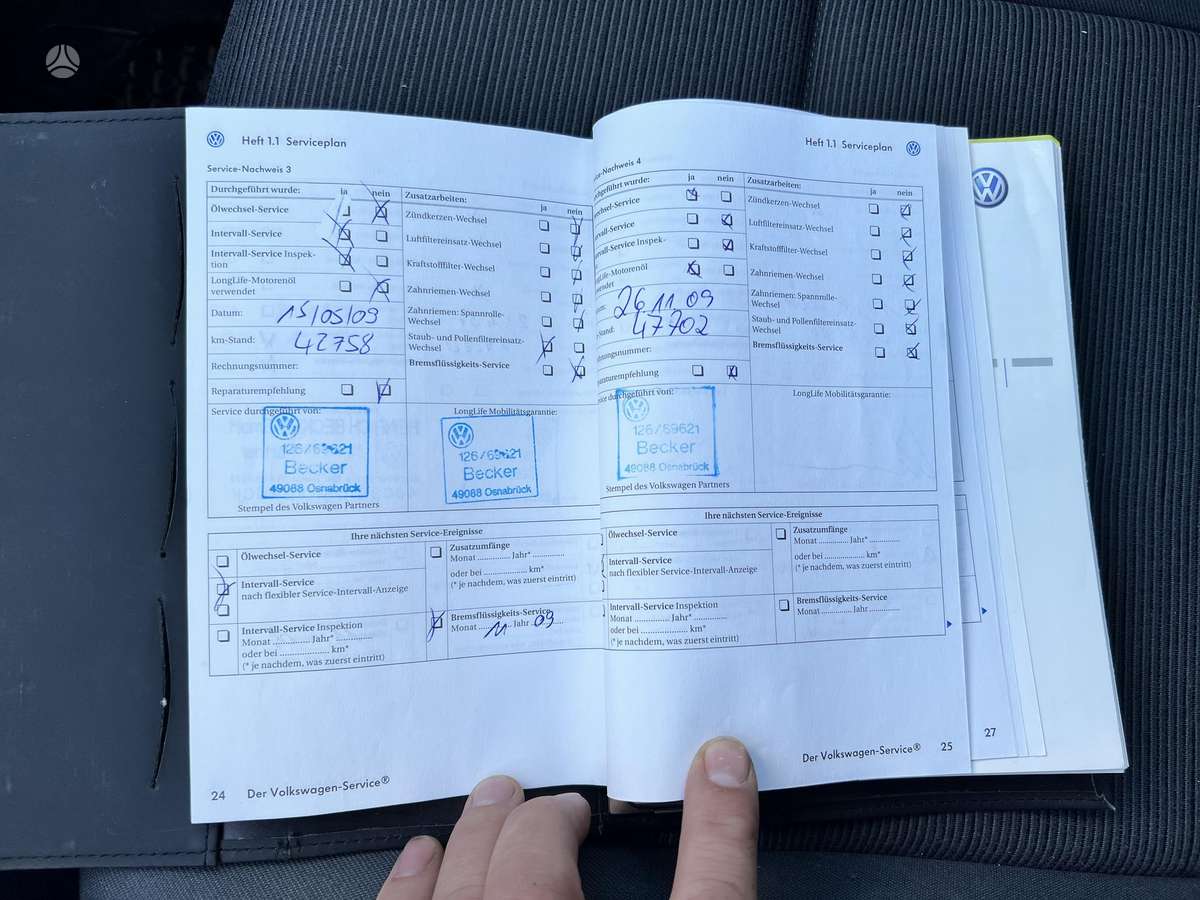 Heft 1.1 Serviceplan
Service-Nachweis 3
Durchgeführt wurde: ja nein
Ölwechsel-Service
Intervall-Service
Intervall-Service Inspek-
tion
LongLife-Motorenöl
verwendet
Datum: 15/05/09
km-Stand: 42758
Rechnungsnummer:
Reparaturempfehlung
Zusatzarbeiten: ja nein
Zündkerzen-Wechsel
Luftfiltereinsatz-Wechsel
Kraftstofffilter-Wechsel
Zahnriemen-Wechsel
Zahnriemen: Spannrolle-
Wechsel
Staub- und Pollenfiltereinsatz-
Wechsel
Bremsflüssigkeits-Service
Service durchgeführt von:
126/69621
Becker
49088 Osnabrück
Stempel des Volkswagen Partners
LongLife Mobilitätsgarantie:
126/69621
Becker
49088 Osnabrück
Ihre nächsten Service-Ereignisse
Ölwechsel-Service
Intervall-Service
nach flexibler Service-Intervall-Anzeige
Intervall-Service Inspektion
Monat .............. Jahr* ..............
oder bei .................... km*
(* je nachdem, was zuerst eintritt)
Zusatzumfänge
Monat ............ Jahr* ............
oder bei .................... km*
(* je nachdem, was zuerst eintritt)
Bremsflüssigkeits-Service
Monat 11 Jahr 09
24 Der Volkswagen-Service®
Heft 1.1 Serviceplan
ce-Nachweis 4
chgeführt wurde: ja nein
wechsel-Service
rvall-Service
rvall-Service Inspek-
ngLife-Motorenöl
wendet
26.11.09
-Stand: 47702
chnungsnummer:
paraturempfehlung
Zusatzarbeiten: ja nein
Zündkerzen-Wechsel
Luftfiltereinsatz-Wechsel
Kraftstofffilter-Wechsel
Zahnriemen-Wechsel
Zahnriemen: Spannrolle-
Wechsel
Staub- und Pollenfiltereinsatz-
Wechsel
Bremsflüssigkeits-Service
ice durchgeführt von:
126/69621
Becker
49088 Osnabrück
Stempel des Volkswagen Partners
LongLife Mobilitätsgarantie:
Ihre nächsten Service-Ereignisse
Ölwechsel-Service
Intervall-Service
nach flexibler Service-Intervall-Anzeige
Intervall-Service Inspektion
Monat .............. Jahr* ..............
oder bei .................... km*
(* je nachdem, was zuerst eintritt)
Zusatzumfänge
Monat ............ Jahr* ............
oder bei .................... km*
(* je nachdem, was zuerst eintritt)
Bremsflüssigkeits-Service
Monat ............ Jahr ............
Der Volkswagen-Service® 25
27